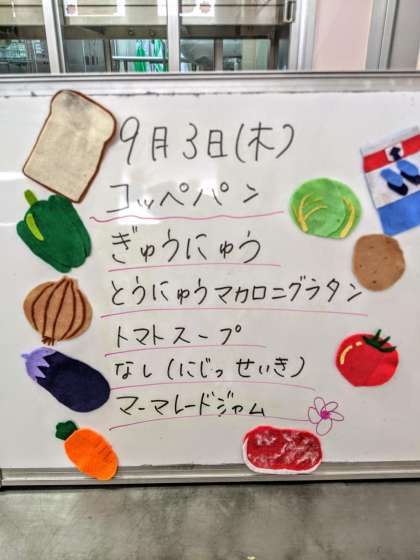 9月3日(木)
コッペパン
ぎゅうにゅう
とうにゅうマカロニグラタン
トマトスープ
なし(にじっせいき)
マーマレードジャム